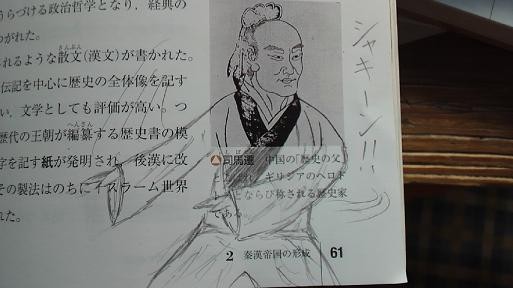 うらづける政治哲学となり，経典の
われた。
れるような散文(漢文)が書かれた。
さんぶん
伝記を中心に歴史の全体像を記す
い，文学としても評価が高い。つ
へんさん
歴代の王朝が編纂する歴史書の模
字を記す紙が発明され，後漢に改
その製法はのちにイスラーム世界
れた。
シャキーン!!
司馬遷 中国の「歴史の父
ギリシアのヘロド
とならび称される歴史家
である。
2 秦漢帝国の形成 61